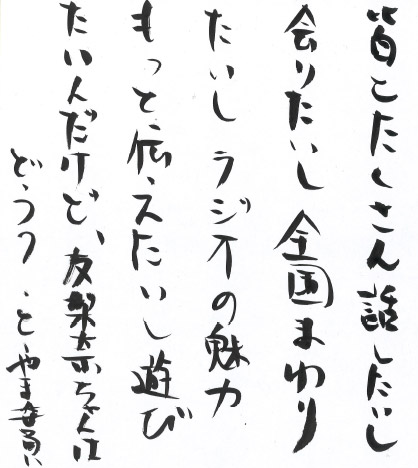 皆とたくさん話したいし
会りたいし 全国まわり
たいし ラジオの魅力
もっと伝えたいし遊び
たいんだけど、友梨奈ちゃんは
どう? とやま委員い